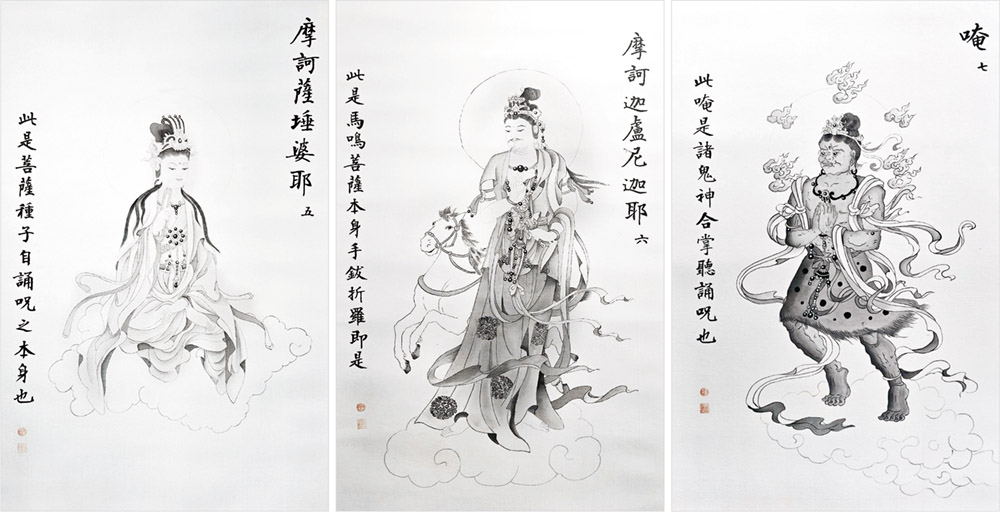 摩訶薩埵婆耶 五
此是菩薩種子自誦呪之本身也
摩訶迦盧尼迦耶 六
此是馬鳴菩薩本身手鈸折羅即是
唵 七
此唵是諸鬼神合掌聽誦呪也